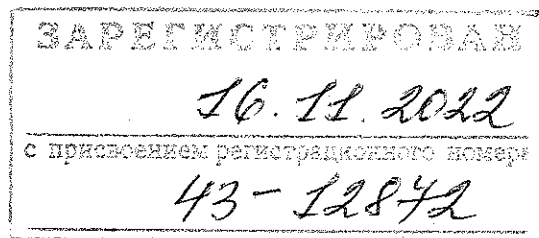 ЗАРЕГИСТРИРОВАН
16.11.2022
с присвоением регистрационного номера
43-12872